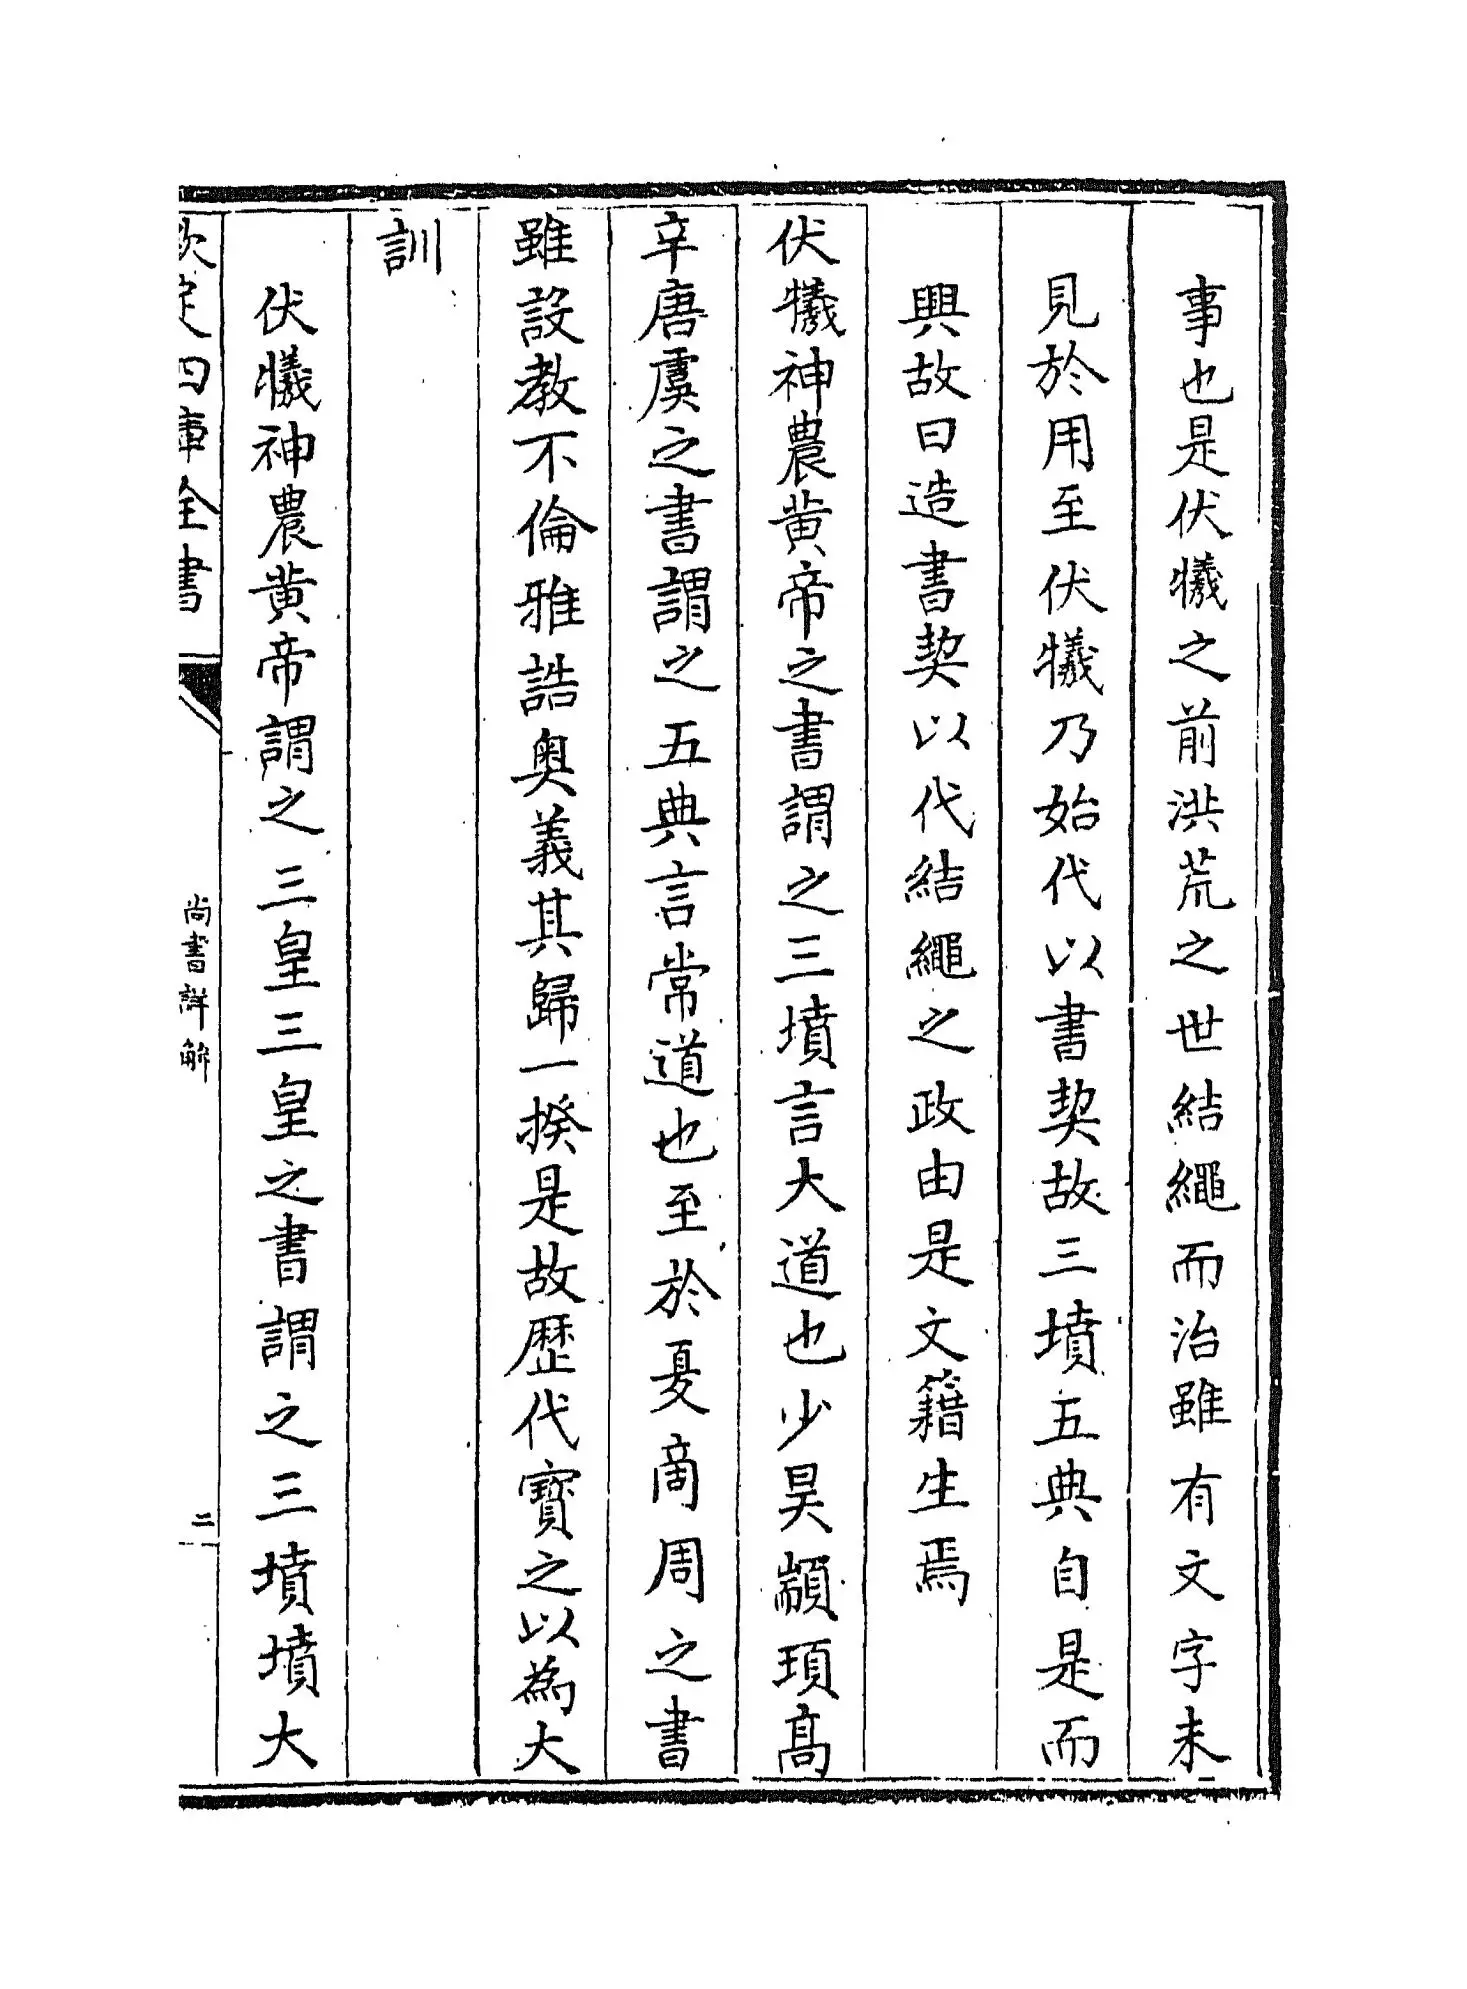 事也是伏犧之前洪荒之世結繩而治雖有文字未
見於用至伏犧乃始代以書契故三墳五典自是而
興故曰造書契以代結繩之政由是文籍生焉
伏犧神農黄帝之書謂之三墳言大道也少昊顓頊髙
辛唐虞之書謂之五典言常道也至於夏商周之書
雖設教不倫雅誥奥義其歸一揆是故歴代寶之以為大
訓
伏犧神農黄帝謂之三皇三皇之書謂之三墳墳大
欽定四庫全書
尚書詳解
二